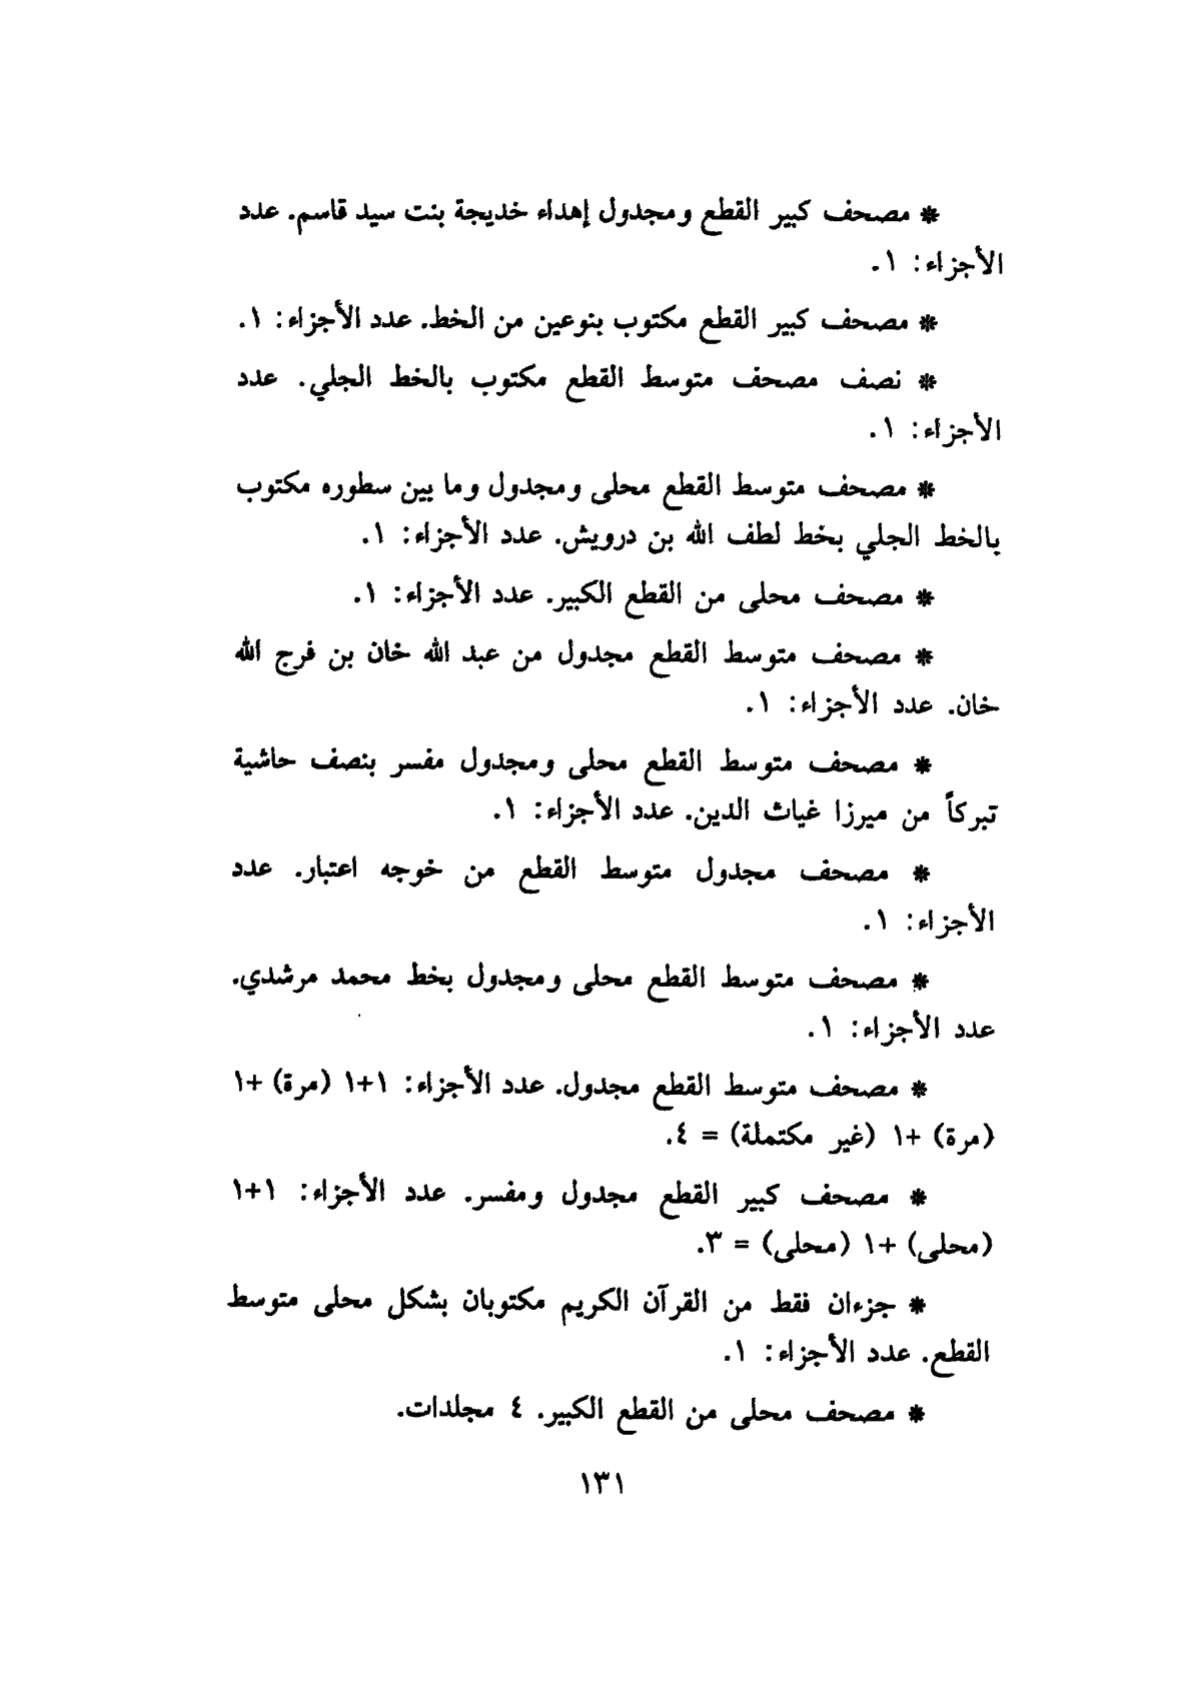 * مصحف كبير القطع ومجدول إهداء خديجة بنت سيد قاسم. عدد
الأجزاء: ١.
* مصحف كبير القطع مكتوب بنوعين من الخط. عدد الأجزاء: ١.
* نصف مصحف متوسط القطع مكتوب بالخط الجلي. عدد
الأجزاء: ١.
* مصحف متوسط القطع محلى ومجدول وما بين سطوره مكتوب
بالخط الجلي بخط لطف الله بن درويش. عدد الأجزاء: ١.
* مصحف محلى من القطع الكبير. عدد الأجزاء: ١.
* مصحف متوسط القطع مجدول من عبد الله خان بن فرج الله
خان. عدد الأجزاء: ١.
* مصحف متوسط القطع محلى ومجدول مفسر بنصف حاشية
تبركاً من ميرزا غياث الدين. عدد الأجزاء: ١.
* مصحف مجدول متوسط القطع من خوجه اعتبار. عدد
الأجزاء: ١.
* مصحف متوسط القطع محلى ومجدول بخط محمد مرشدي.
عدد الأجزاء: ١.
* مصحف متوسط القطع مجدول. عدد الأجزاء: ١+١ (مرة) +١
(مرة) +١ (غير مكتملة) = ٤.
* مصحف كبير القطع مجدول ومفسر. عدد الأجزاء: ١+١
(محلى) +١ (محلى) = ٣.
* جزءان فقط من القرآن الكريم مكتوبان بشكل محلى متوسط
القطع. عدد الأجزاء: ١.
* مصحف محلى من القطع الكبير. ٤ مجلدات.
١٣١